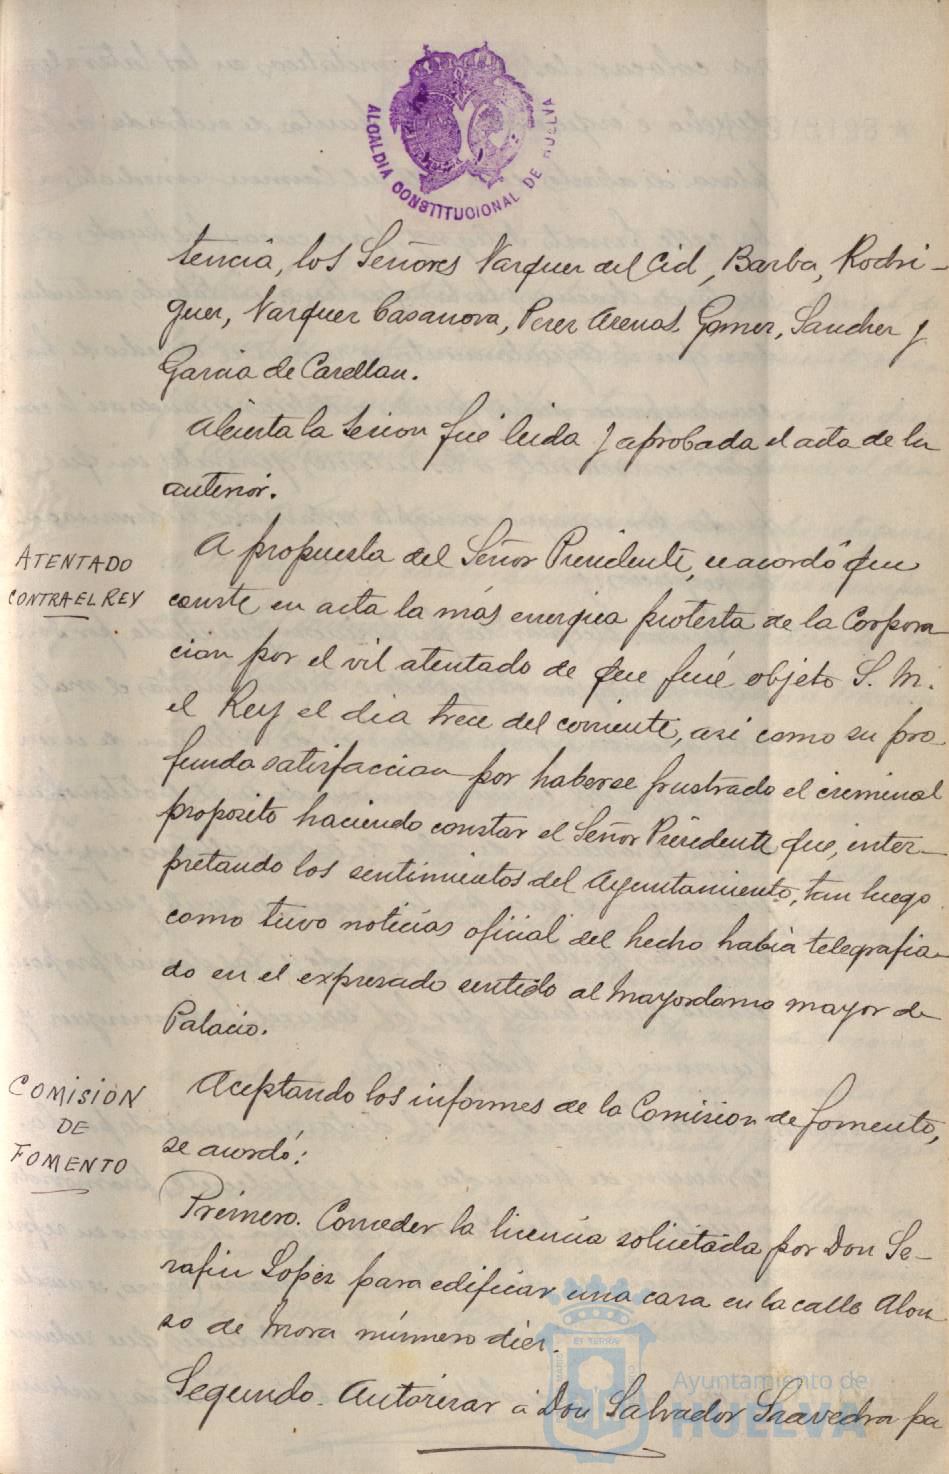 ALCALDIA CONSTITUCIONAL DE HUELVA
tencia, los Señores Vazquez del Cid, Barba, Rodri-
guez, Vazquez Casanova, Perez Arenas, Gomez, Sanchez y
Garcia de Carellan.
Abierta la sesion fué leida y aprobada el acta de la
anterior.
ATENTADO
CONTRA EL REY
A propuesta del Señor Presidente, se acordó que
conste en acta la más energica protesta de la Corpora
cion por el vil atentado de que fué objeto S. M.
el Rey el dia trece del corriente, asi como su pro
funda satisfaccion por haberse frustrado el criminal
proposito haciendo constar el Señor Presidente que, inter-
pretando los sentimientos del Ayuntamiento, tan luego
como tuvo noticias oficial del hecho habia telegrafia-
do en el expresado sentido al Mayordomo mayor de
Palacio.
COMISION
DE
FOMENTO
Aceptando los informes de la Comision de fomento,
se acordó:
Primero. Conceder la licencia solicitada por Don Se-
rafin Lopez para edificar una casa en la calle Alon
so de Mora número diez.
Segundo. Autorizar á Don Salvador Saavedra pa
Ayuntamiento de
HUELVA